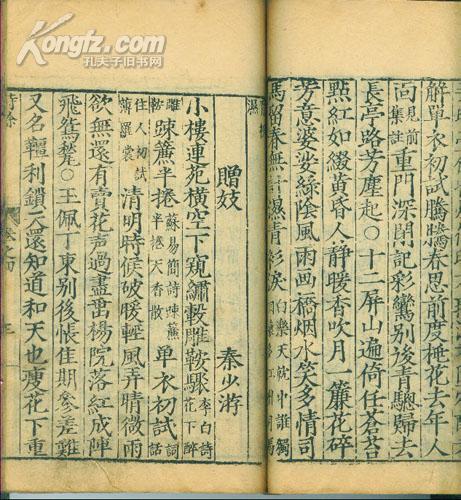 Kongfz.com
孔夫子旧书网
解單衣初試騰騰春思前度桃花去年人
面見前集註重門深閉記彩鸞別後青驄歸去
長亭路芳塵起○十二屏山遍倚任蒼苔
點紅如綴黃昏人靜暖香吹月一簾花碎
芳意婆娑綠陰風雨画橋烟水笑多情司
馬留春無計濕青衫淚白樂天就中誰獨
贈妓
秦少游
小樓連苑橫空下窺繡轂雕鞍驟李白詩花下醉
疎簾半捲蘇易簡詩疎簾半捲天香散單衣初試詞
佳人初試薄羅裳清明時候破暖輕風弄晴微雨
欲無還有賣花声過盡垂楊院落紅成陣
飛鴛甃○玉佩丁東別後悵佳期參差難
又名韁利鎖天還知道和天也瘦花下重
詩餘